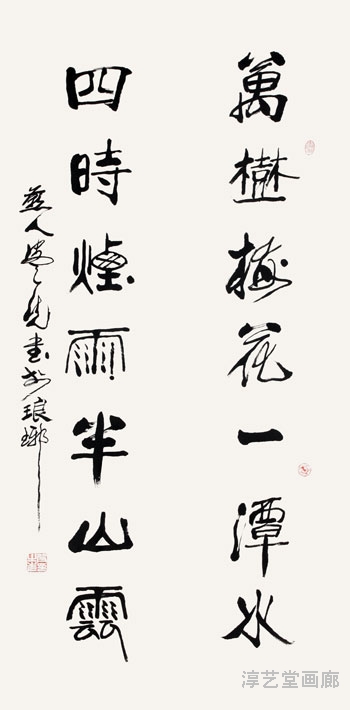 萬樹梅花一潭水
四時煙雨半山雲
書於琅琊
淳艺堂画廊